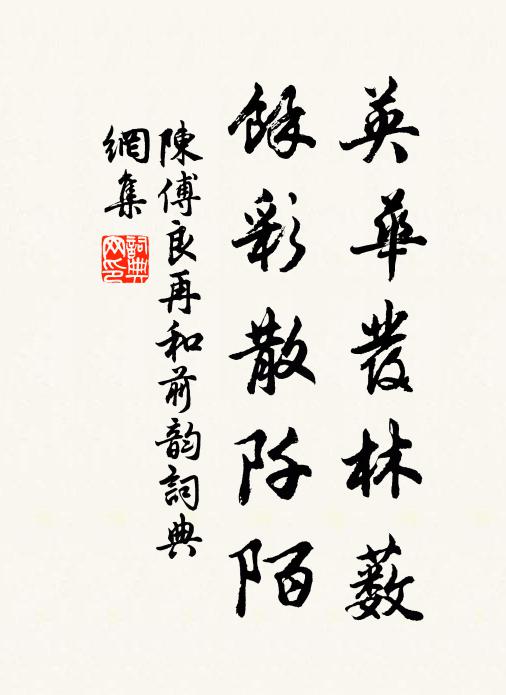 英華發林薮
餘彩散阡陌
陳傅良再和前韵詞典
網集
詞典
网印